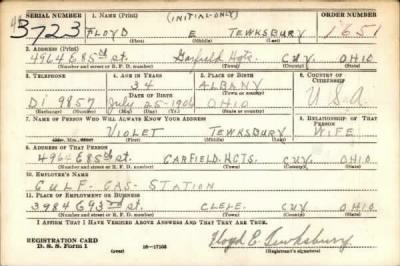 SERIAL NUMBER 1. NAME (Print) (INITIAL-ONLY) ORDER NUMBER
3723 FLOYD E TEWKSBURY 1651
(First) (Middle) (Last)
2. ADDRESS (Print)
4964 E 85th St. Garfield Hgts. CUY. OHIO
(Number and street or R. F. D. number) (Town) (County) (State)
3. TELEPHONE 4. AGE IN YEARS 5. PLACE OF BIRTH 6. COUNTRY OF CITIZENSHIP
34 ALBANY
DATE OF BIRTH (Town or county)
Di 9857 July 25-1906 OHIO U.S.A
(Exchange) (Number) (Mo.) (Day) (Yr.) (State or country)
7. NAME OF PERSON WHO WILL ALWAYS KNOW YOUR ADDRESS 8. RELATIONSHIP OF THAT PERSON
VIOLET TEWKSBURY WIFE
(Mr., Mrs., Miss) (First) (Middle) (Last)
9. ADDRESS OF THAT PERSON
4964 E 85th St. GARFIELD. HGTS. CUY. OHIO.
(Number and street or R. F. D. number) (Town) (County) (State)
10. EMPLOYER'S NAME
GULF-GAS-STATION
11. PLACE OF EMPLOYMENT OR BUSINESS
3984 E 93rd St. CLEVE. CUY OHIO.
(Number and street or R. F. D. number) (Town) (County) (State)
I AFFIRM THAT I HAVE VERIFIED ABOVE ANSWERS AND THAT THEY ARE TRUE.
REGISTRATION CARD
D. S. S. Form 1 (over) 16-17105 Floyd E. Tewksbury